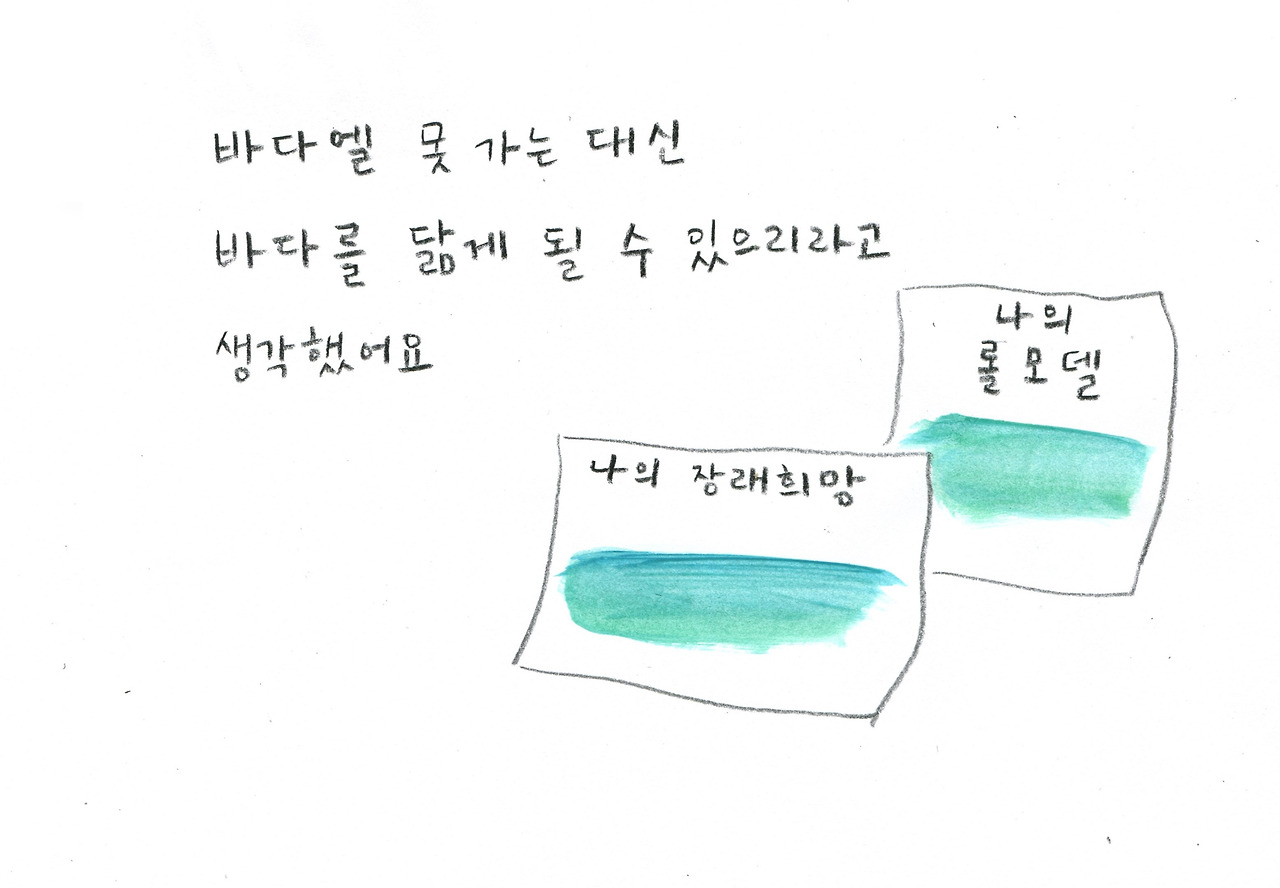 바다엘 못 가는 대신
바다를 닮게 될 수 있으리라고
생각했어요
나의
롤모델
나의 장래희망